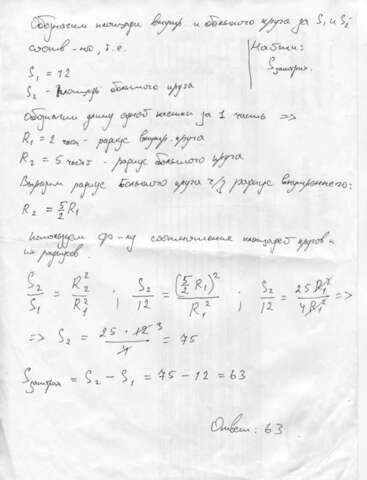 Обозначим площади внутр. и большого круга за S₁ и S₂
соотв-но, т.е.
Найти:
Sзаштрих.
S₁ = 12
S₂ - площадь большого круга
Обозначим длину одной клетки за 1 часть =>
R₁ = 2 част. - радиус внутр. круга
R₂ = 5 част - радиус большого круга
Выразим радиус большого круга ч/з радиус внутреннего:
R₂ = 5/2 R₁
Используем ф-лу соотношения площадей кругов и
их радиусов.
S₂/S₁ = R₂²/R₁² ; S₂/12 = (5/2 R₁)²/R₁² ; S₂/12 = 25R₁²/4R₁² =>
=> S₂ = 25 · 12 3/4 = 75
Sзаштрих = S₂ - S₁ = 75 - 12 = 63
Ответ: 63